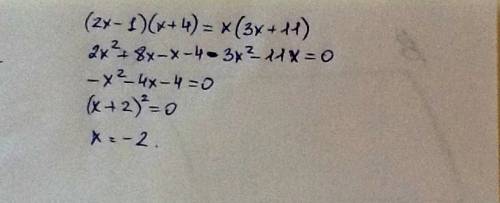 (2x-1)(x+4) = x(3x+11)
2x²+8x-x-4-3x²-11x=0
-x²-4x-4=0
(x+2)²=0
x=-2.